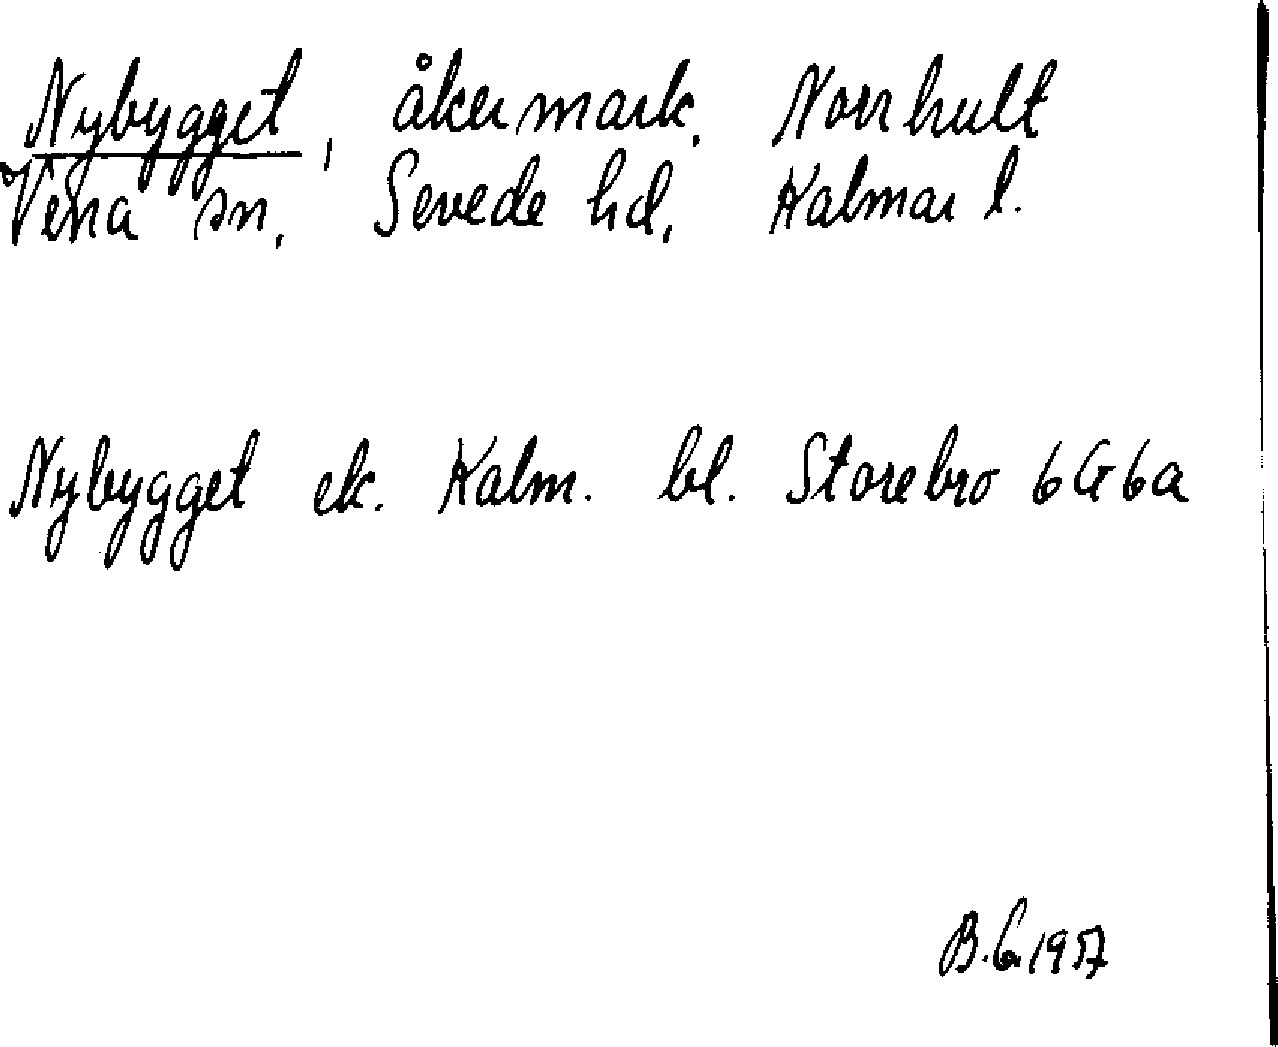 Nybygget, åkermark. Norrhult
Vena sn, Sevede hd, Kalmar l.
Nybygget ek. Kalm. bl. Storebro 6G6a
B.G. 1957